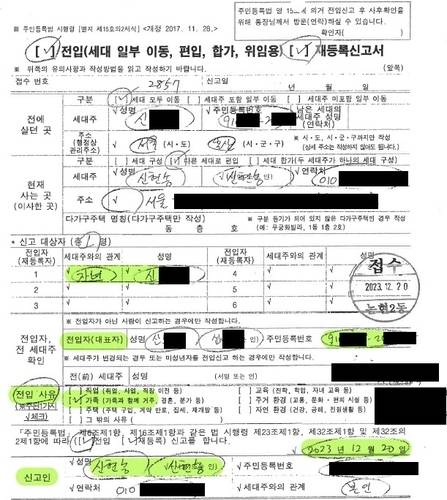 ■ 주민등록법 시행령 [별지 제15호의2서식] <개정 2017. 11. 28.>
의거 전입신고 후 사후확인을
위해 통장님께서 방문(연락)하실 수 있습니다.
확인자( )
[√] 전입(세대 일부 이동, 편입, 합가, 위임용) [√] 재등록신고서
※ 뒤쪽의 유의사항과 작성방법을 읽고 작성하기 바랍니다. (앞쪽)
접수 번호 2857 신고일 년 월 일
전에 살던 곳
구분 [√] 세대 모두 이동 [ ] 세대주 포함 일부 이동 [ ] 세대주 미포함 일부 이동
세대주 √성명 신 √주민등록번호 9
남은 세대의 세대주 성명 (연락처)
주소 (행정상 관리주소) √ 서울 (시·도) (시·군·구)
※ 시·도, 시·군·구까지만 작성
(상세 주소는 작성하지 않아도 됩니다)
현재 사는 곳 (이사한 곳)
구분 [ ] 세대 구성 [√] 다른 세대로 편입 [ ] 세대 합가(두 세대주가 하나의 세대 구성)
세대주 √성명 √연락처 010
주소 √ 서울
다가구주택 명칭(다가구주택만 작성)
동 층 호
※ 구분 등기가 되어 있지 않은 다가구주택의 경우 작성
(예: 무궁화빌라, 1동 1층 2호)
* 신고 대상자(총 1 명)
전입자 (재등록자) 세대주와의 관계 성명 전입자 (재등록자) 세대주와의 관계 성명
1 √ 자녀 √ 신 4
2 5
3 6
접수
2023.12.20
논현2동
전입자, 전 세대주 확인
※ 전입자가 아닌 사람이 신고하는 경우에만 작성합니다.
전입자(대표자) 성명 신 주민등록번호 9
※ 세대주가 변경되는 경우 또는 미성년자를 전입신고 하는 경우에만 작성합니다.
전(前) 세대주 성명 (서명 또는 인)
전입 사유
√체크)
[ ] 직업 (취업, 사업, 직장 이전 등) [ ] 교육 (진학, 학업, 자녀 교육 등)
[√] 가족 (가족과 함께 거주, 결혼, 분가 등) [ ] 주거 환경 (교통, 문화·편의 시설 등)
[ ] 주택 (주택 구입, 계약 만료, 집세, 재개발 등) [ ] 자연 환경 (건강, 공해, 전원생활 등)
[ ] 그 밖의 사유 (
「주민등록법」 제16조제1항과 같은 법 시행령 제23조제1항, 제32조제1항 및 제32조의
2제1항에 따라 [√] 전입 [√] 재등록) 신고를 합니다.
√ 2023 년 12 월 20 일
신고인 √성명 √주민등록번호
√연락처 010 √세대주와의 관계 본인